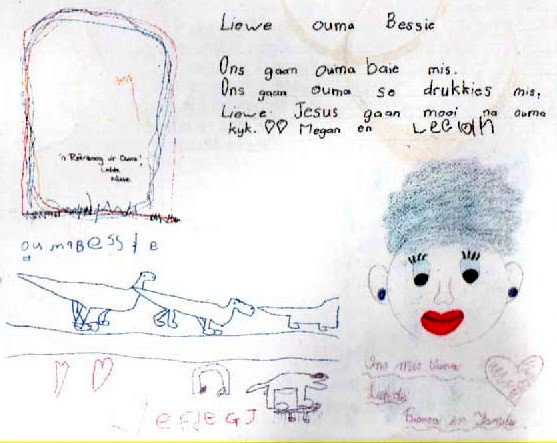 Liewe ouma Bessie
Ons gaan ouma baie mis.
Ons gaan ouma se drukkies mis.
Liewe Jesus gaan mooi na ouma
kyk. ♡♡ Megan en Leeah
'n Reënboog vir Ouma!
Liefde
oumaBessie
Ons mis Ouma
Liefde
Bianca en Familie